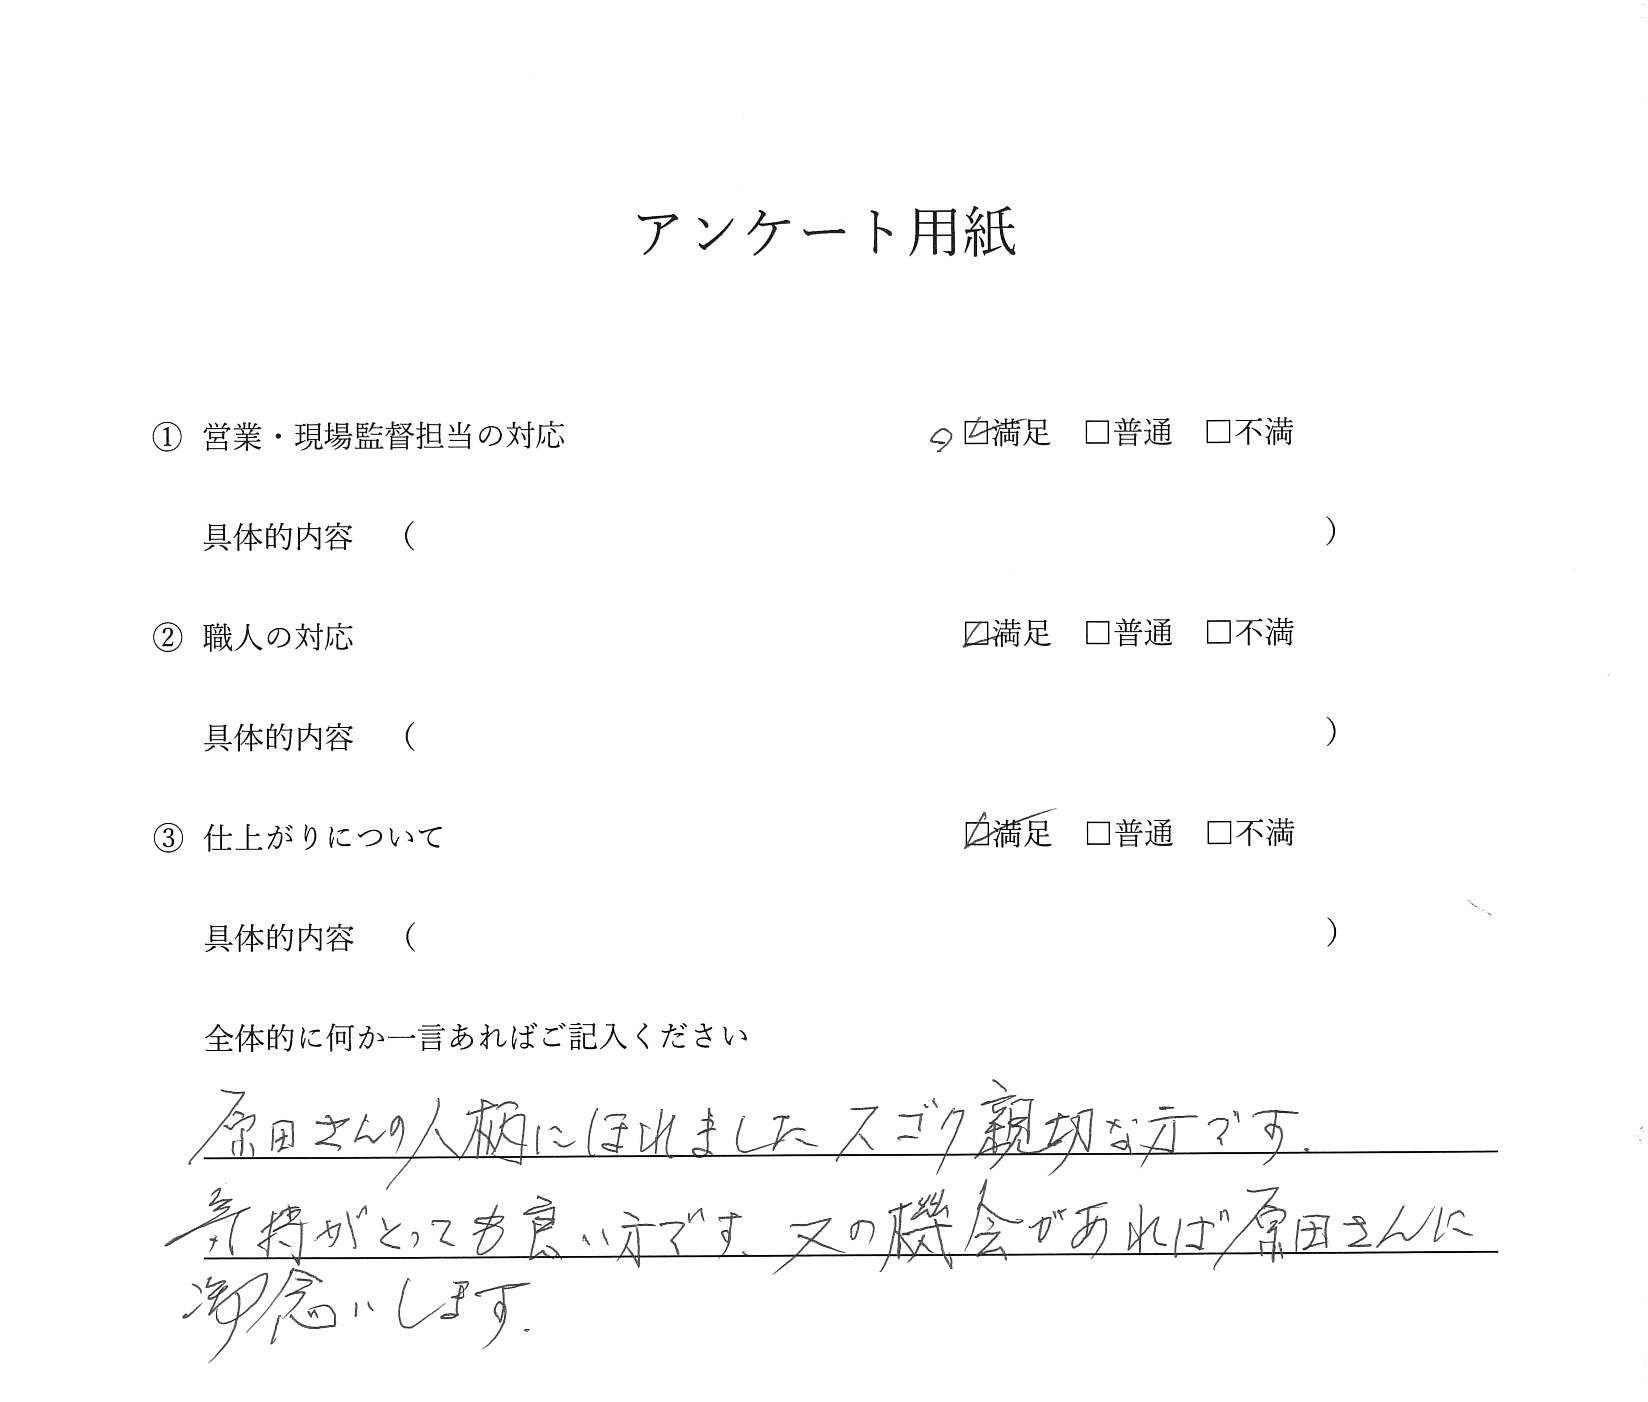 アンケート用紙
① 営業・現場監督担当の対応 ☑満足 □普通 □不満
具体的内容 （ ）
② 職人の対応 ☑満足 □普通 □不満
具体的内容 （ ）
③ 仕上がりについて ☑満足 □普通 □不満
具体的内容 （ ）
全体的に何か一言あればご記入ください
原田さんの人柄にほれました スゴク親切な方です.
気持がとっても良い方です. 又の機会があれば原田さんに
御念いします.